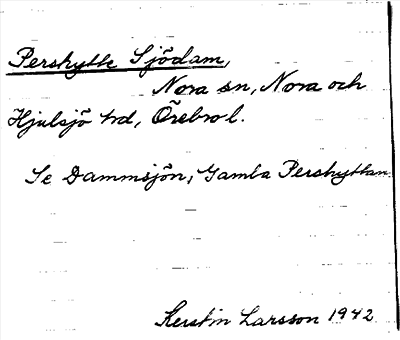 Pershytte Sjödam,
Nora sn, Nora och
Hjulsjö hd, Örebro l.
Se Dammsjön, Gamla Pershyttan.
Kerstin Larsson 1942